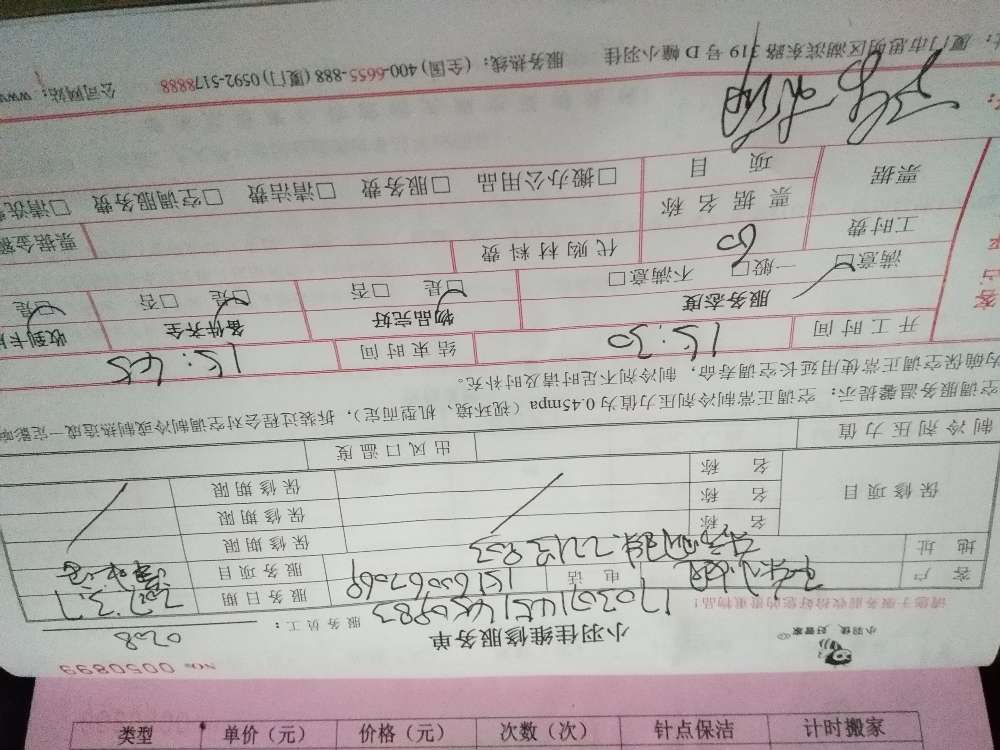 NO. 0050899
小羽佳，好管家
小羽佳维修服务单
服务员工：0208
请您于服务前收拾好您的贵重物品！
客户 电话 服务日期
地址 服务项目
保修项目 名称 保修期限
名称 保修期限
名称 保修期限
制冷剂压力值 出风口温度
空调服务温馨提示：空调正常制冷剂压力值为0.45mpa（视环境、机型而定），拆装过程会对空调制冷或制热造成一定影响
为确保空调正常使用延长空调寿命，制冷剂不足时请及时补充。
开工时间 15:30 结束时间 15:45
服务态度 物品完好 备件齐全 收到卡片
满意□ 一般□ 不满意□ □是 □否 □是 □否 □是
工时费 60 代购材料费
票据 票据名称 票据金额
项目 □搬办公用品 □服务费 □清洁费 □空调服务费 □清洗
厦门市思明区湖滨东路319号D幢小羽佳 服务热线：（全国）400-6655-888（厦门）0592-5178888 公司网站：www
类型 单价（元） 价格（元） 次数（次） 针点保洁 计时搬家